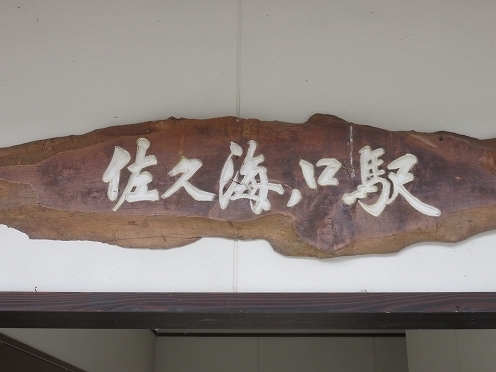 佐久海ノ口駅